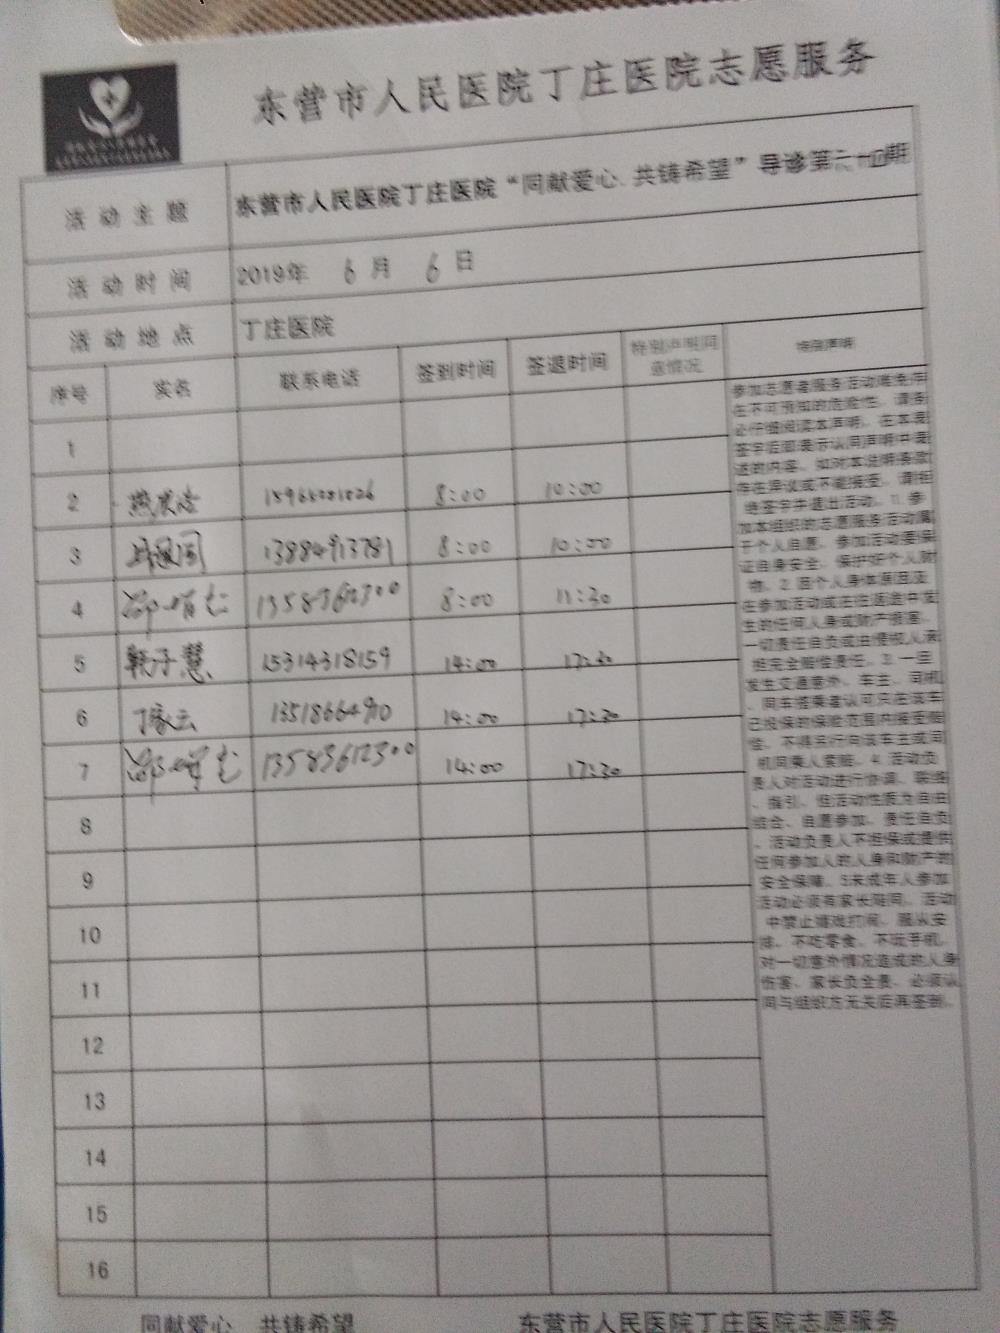 东营市人民医院丁庄医院志愿服务
活动主题 东营市人民医院丁庄医院“同献爱心、共铸希望”导诊第六十四期
活动时间 2019年 6月 6日
活动地点 丁庄医院
序号 实名 联系电话 签到时间 签退时间 特别声明同意情况 特别声明
1
2 8:00 10:00
3 13884913781 8:00 10:00
4 8:00 11:30
5 韩子慧 15314318159 14:00 17:30
6 丁家云 13518664910 14:00 17:30
7 13583612300 14:00 17:30
8
9
10
11
12
13
14
15
16
参加志愿者服务活动难免存
在不可预知的危险性，请务
必仔细阅读本声明，在本表
签字后即表示认同声明中陈
述的内容，如对本说明条款
存在异议或不能接受，请拒
绝签字并退出活动。1. 参
加本组织的志愿服务活动属
于个人自愿，参加活动要保
证自身安全，保护好个人财
物。2. 因个人身体原因及
在参加活动或往往返途中发
生的任何人身或财产损害，
一切责任自负或由侵权人承
担完全赔偿责任。3. 一旦
发生交通意外，车主、司机
、同车搭乘者认可只在该车
已投保的保险范围内接受赔
偿，不得另行向该车主或司
机同乘人索赔。4. 活动负
责人对活动进行协调、联络
、指引，但活动性质为自由
结合、自愿参加、责任自负
，活动负责人不担保或提供
任何参加人的人身和财产的
安全保障。5未成年人参加
活动必须有家长陪同，活动
中禁止嬉戏打闹，服从安
排，不吃零食，不玩手机，
对一切意外情况造成的人身
伤害，家长负全责，必须认
同与组织方无关后再签到。
同献爱心 共铸希望 东营市人民医院丁庄医院志愿服务